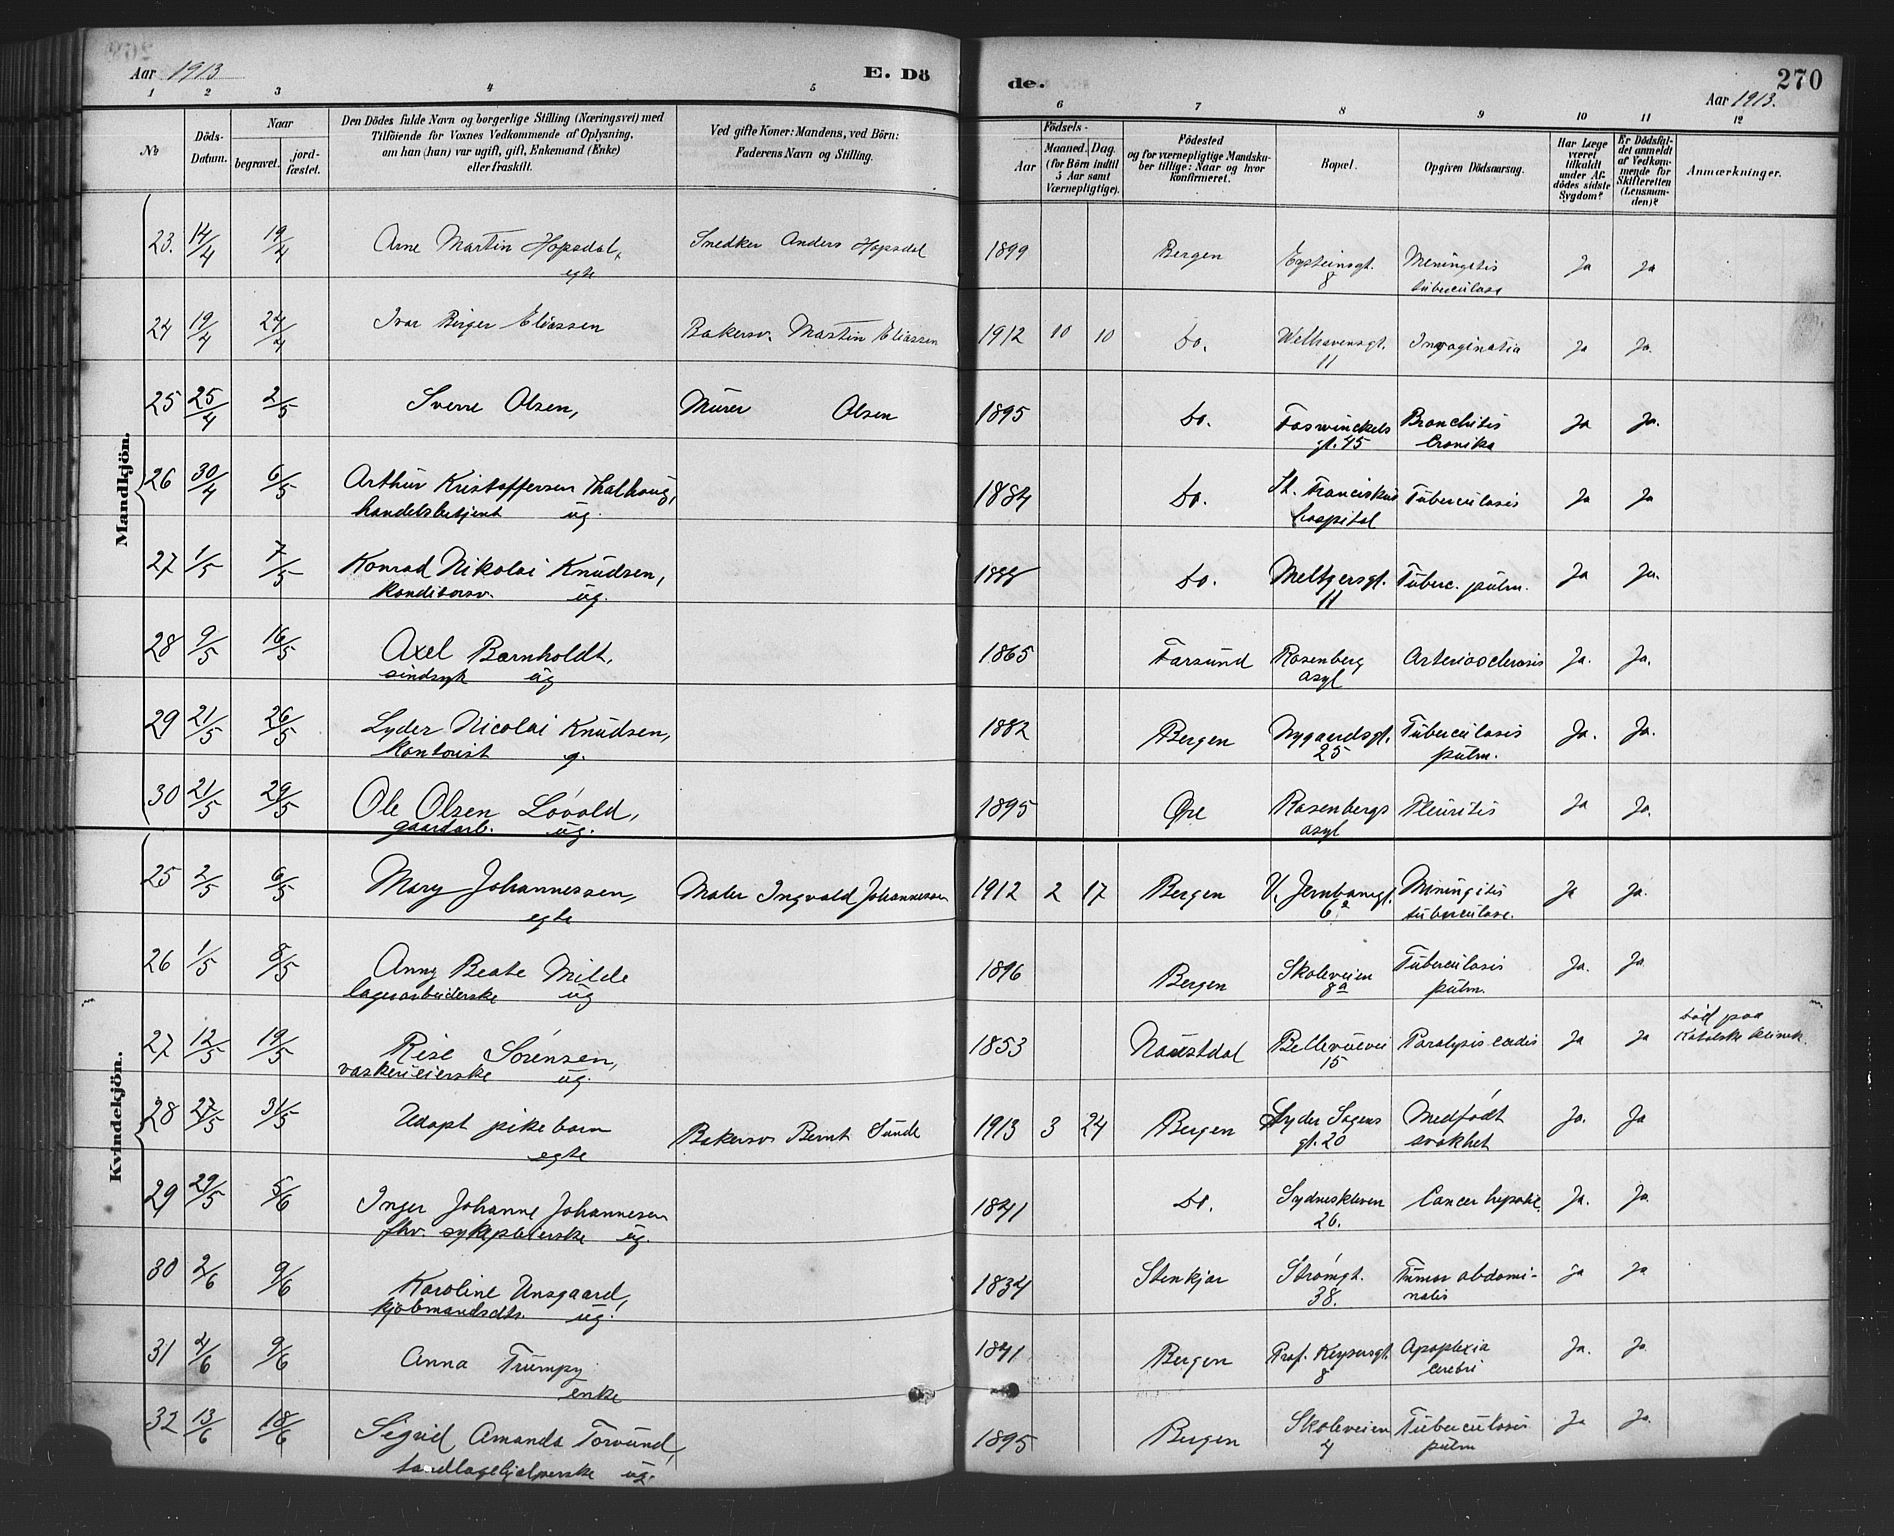 Aar 1913
E. Dö
de.
270
Aar 1913.
1 2 3 4 5 6 7 8 9 10 11 12
No
Döds-Datum.
Naar
begravet. jord-fæstet.
Den Dödes fulde Navn og borgerlige Stilling (Næringsvei) med
Tilföiende for Voxnes Vedkommende af Oplysning,
om han (hun) var ugift, gift, Enkemand (Enke)
eller fraskilt.
Ved gifte Koner: Mandens, ved Börn:
Faderens Navn og Stilling.
Födsels-
Aar Maaned. Dag.
(for Börn indtil
5 Aar samt
Værnepligtige).
Födested
og for værnepligtige Mandska-
ber tillige: Naar og hvor
konfirmeret.
Bopæl.
Opgiven Dödsaarsag.
Har Læge
været
tilkaldt
under Af-
dödes sidste
Sygdom?
Er Dödsfal-
det anmeldt
af Vedkom-
mende for
Skifteretten
(Lensman-
den)?
Anmærkninger.
Mandkjön.
23. 14/4 19/4 Arne Martin Hopsdal, Snedker Anders Hopsdal 1899 Bergen Eysteinsgt. Meningitis Ja Ja
egte 8 tuberculosa
24 19/4 24/4 Ivar Birger Eliassen Bakersv. Martin Eliassen 1912 10 10 Do. Welhavensgt. Invaginatia Ja Ja.
11
25 25/4 2/5 Sverre Olsen, Murer Olsen 1895 Do. Foswinckels Bronchitis Ja Ja.
gt. 45 Cronika
26 30/4 6/5 Arthur Kristoffersen Thalhaug, 1884 Do. St. Franciskus Tuberculosis Ja Ja
handelsbetjent ug. hospital
27 1/5 7/5 Konrad Nikolai Knudsen, 1888 Do. Meltzersgt. Tuberc. pulm. Ja Ja.
Konditorsv. ug. 11
28 9/5 16/5 Axel Barnholdt, 1865 Farsund Rosenberg Arteriosclerosis Ja. Ja.
sindsyk ug asyl
29 21/5 26/5 Lyder Nicolai Knudsen, 1882 Bergen Nygaardsgt. Tuberculosis Ja. Ja.
Kontorist g. 25 pulm.
30 21/5 29/5 Ole Olsen Lóvold, 1895 Øre Rosenbergs Pleuritis Ja Ja.
gaardarb. ug. asyl
Kvindekjön.
25 2/5 6/5 Mary Johannessen, Maler Ingvald Johannessen 1912 2 17 Bergen V. Jernbanegt. Miningitis Ja Ja.
egte 6a tuberculose.
26 1/5 8/5 Anny Beate Milde 1896 Bergen Skoleveien Tuberculosis Ja. Ja
lagerarbeiderske ug 8a pulm.
27 12/5 19/5 Rise Sørensen, 1853 Naustdal Bellevuevei Paralysis cordis Ja Ja död paa
vaskerieierske ug. 15 Katolske klinik.
28 27/5 31/5 Udøpt pikebarn Bakersv Bernt Sunde 1913 3 24 Bergen Lyder Sagens Medfødt Ja. Ja
egte gt. 20 svakhet
29 29/5 5/6 Inger Johanne Johannesen 1841 Do. Sydneskleven Cancer hepatic. Ja. Ja.
fhv. sykepleierske ug. 26.
30 2/6 9/6 Karoline Unsgaard, 1834 Stenkjær Strömgt. Tumor abdomi- Ja Ja
kjøbmandsdtr. ug. 38. nalis
31 4/6 9/6 Anna Trumpy 1841 Bergen Prof. Keysersgt. Apoplexia Ja. Ja
enke 8 cerebri
32 13/6 18/6 Sigrid Amanda Torvund, 1895 Bergen Skoleveien Tuberculosis Ja Ja.
tandlægehjælperske ug. 4 pulm